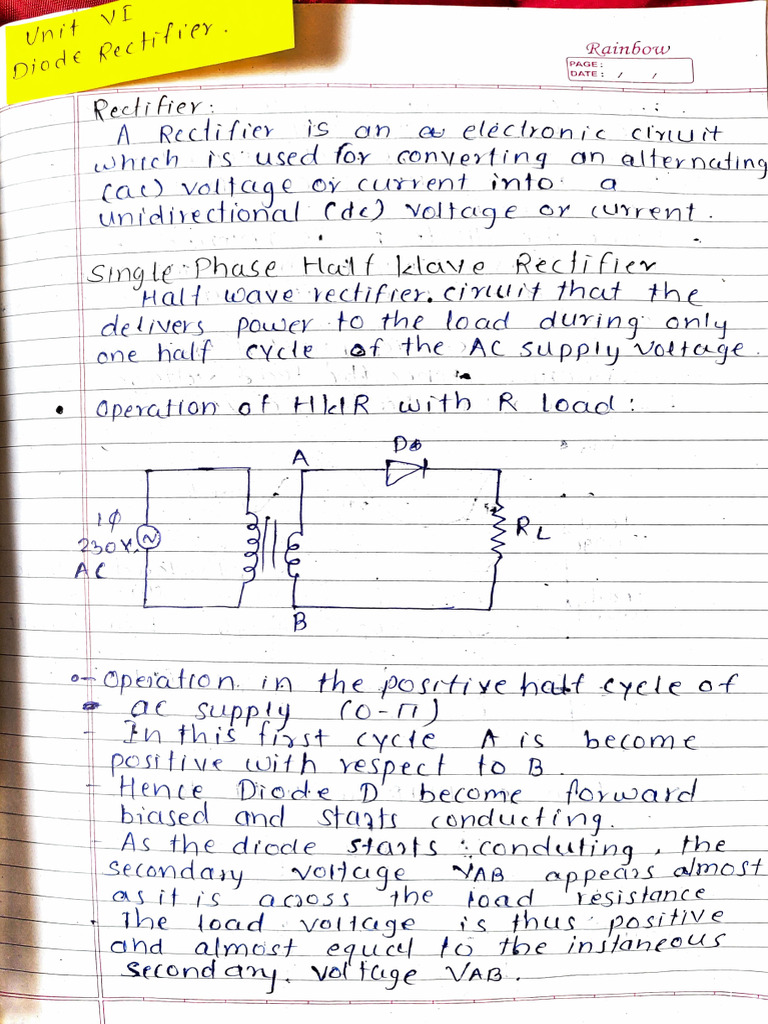 Unit VI
Diode Rectifier.
Rainbow
PAGE:
DATE: / /
Rectifier:
A Rectifier is an electronic ciruit
which is used for converting an alternating
(ac) voltage or current into a
unidirectional (dc) voltage or current.
Single Phase Half Wave Rectifier
Half wave rectifier. ciruit that the
delivers power to the load during only
one half cycle of the AC supply voltage.
• Operation of HWR with R load:
A
D
1φ
230V.
AC
RL
B
Operation in the positive half cycle of
ac supply (0-π)
- In this first cycle A is become
positive with respect to B.
- Hence Diode D become forward
biased and starts conducting.
- As the diode starts conduting, the
secondary voltage VAB appears almost
as it is across the load resistance
. The load voltage is thus positive
and almost equal to the instaneous
secondary. voltage VAB.